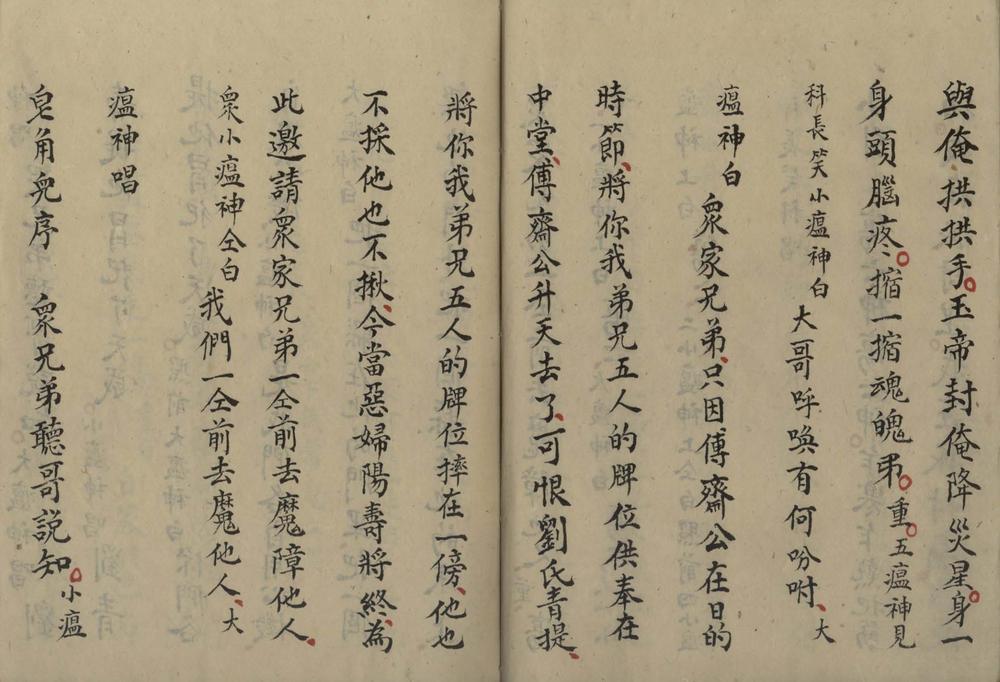 與俺拱拱手。玉帝封俺降災星。身一
身頭腦疼。搐一搐魂魄弔。重。五瘟神見
科長笑小瘟神白 大哥呼喚有何吩咐、大
瘟神白 眾家兄弟、只因傅齋公在日的
時節、將你我弟兄五人的牌位供奉在
中堂、傅齋公升天去了、可恨劉氏青提、
將你我弟兄五人的牌位摔在一傍、他也
不採他也不揪、今當惡婦陽壽將終、為
此邀請眾家兄弟一仝前去魔障他人、
眾小瘟神仝白 我們一仝前去魔他人、大
瘟神唱
皂角兒序 眾兄弟聽哥說知。小瘟